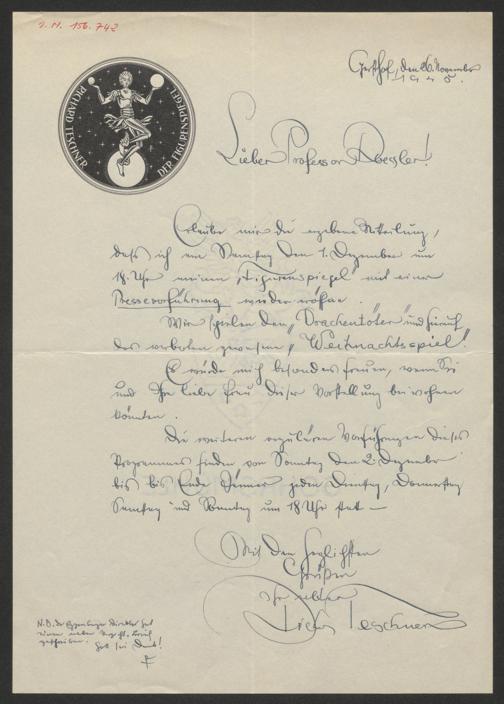 I.N. 156.742
RICHARD TESCHNER
DER FIGURENSPIEGEL
Gersthof, den 26. November
1945.
Lieber Professor Roessler!
Erlaube mir die ergebene Mitteilung,
dass ich am Samstag den 1. Dezember um
18. Uhr meinen „Figurenspiegel" mit einer
Pressevorführung wieder eröffne.
Wir spielen den „Drachentöter" und hierauf
das verboten gewesene „Weihnachtsspiel".
Es würde mich besonders freuen, wenn Sie
und Ihre liebe Frau dieser Vorstellung beiwohnen
könnten.
Die weiteren regulären Vorführungen dieses
Programmes finden von Sonntag den 2. Dezember
bis Ende Jänner jeden Dienstag, Donnerstag
Samstag und Sonntag um 18 Uhr statt —
Mit den herzlichsten
Grüßen
Ihr
Richard Teschner
N.B. Direktor hat
einen
geschrieben.
Gott sei Dank!